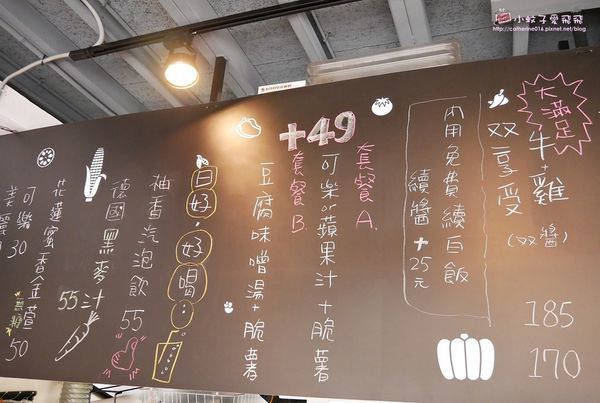 小蚊子愛飛飛
http://catherine016.pixnet.net/blog
大滿足
牛+雞
雙享受
(双醬)
185
170
內用免費續白飯
續醬+25元
+49
套餐A.
可樂or蘋果汁+脆薯
套餐B.
豆腐味噌湯+脆薯
日好,好喝:
柚香汽泡飲 55
德國黑麥汁 55
花蓮蜜香金萱
無糖 50
可樂 30